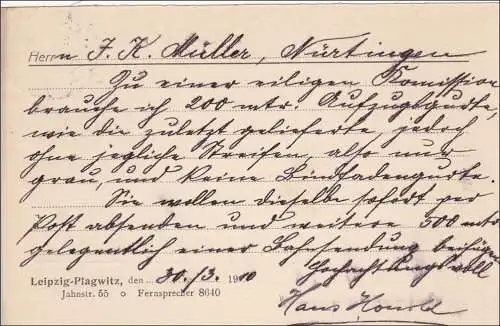 Herrn J. K. Müller, Nürtingen
Zu einer eiligen Komission
brauche ich 200 mtr. Aufzugsgurte,
wie die zuletzt gelieferte, jedoch
ohne jegliche Streifen, also nur
grau, und keine Bindfadengurte.
Sie wollen dieselbe sofort per
Post absenden und weitere 500 mtr
gelegentlich einer Bahnsendung beifügen
Hochachtungsvoll
Leipzig-Plagwitz, den 30./3. 1910
Jahnstr. 55 o Fernsprecher 8640
Hans